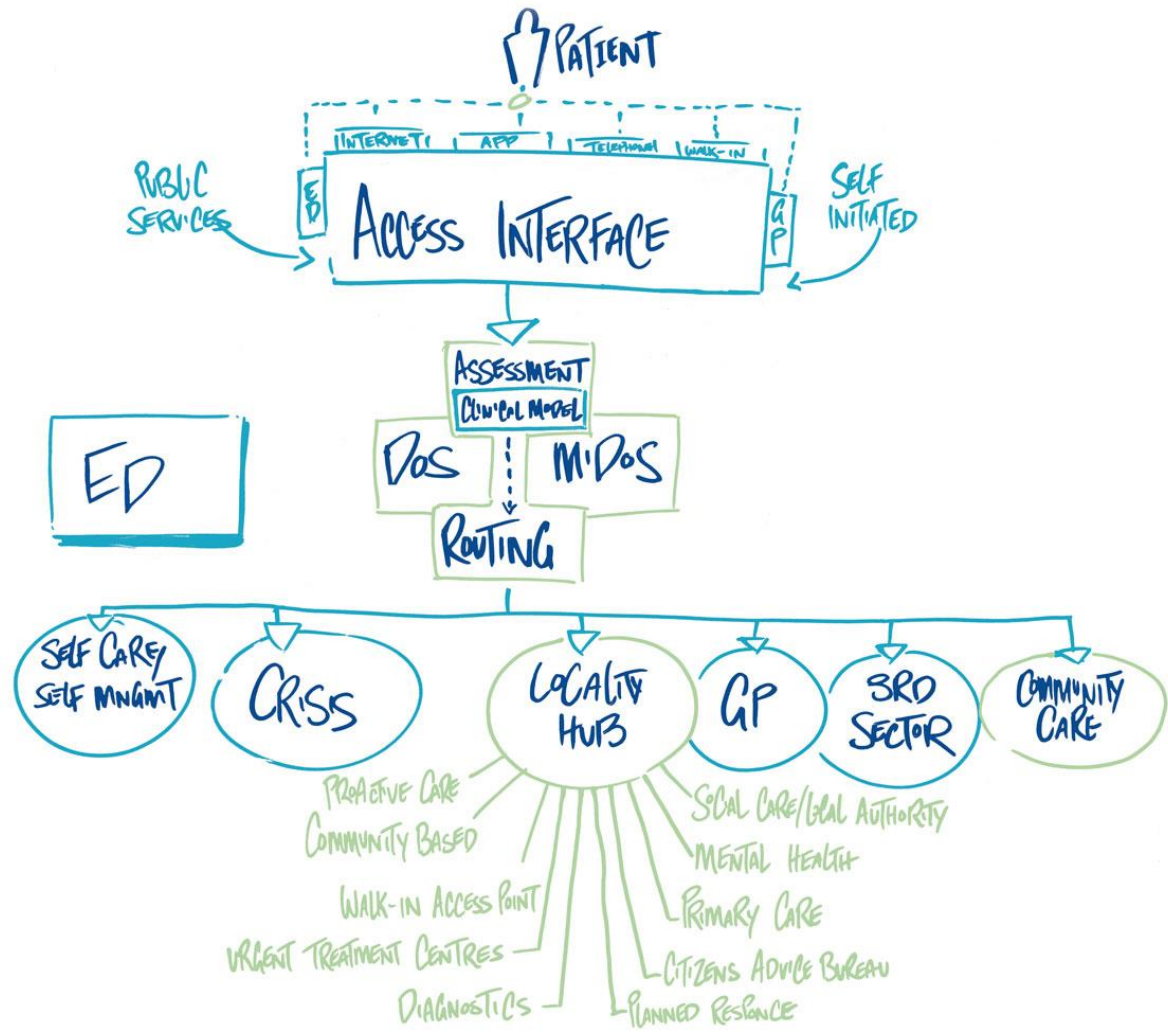 PATIENT
INTERNET
APP
TELEPHONE
WALK-IN
PUBLIC
SERVICES
ED
ACCESS INTERFACE
GP
SELF
INITIATED
ASSESSMENT
CLINICAL MODEL
DOS
MiDOS
ROUTING
ED
SELF CARE/
SELF MNGMT
CRISIS
LOCALITY
HUB
GP
3RD
SECTOR
COMMUNITY
CARE
PROACTIVE CARE
COMMUNITY BASED
WALK-IN ACCESS POINT
URGENT TREATMENT CENTRES
DIAGNOSTICS
SOCIAL CARE/LOCAL AUTHORITY
MENTAL HEALTH
PRIMARY CARE
CITIZENS ADVICE BUREAU
PLANNED RESPONCE